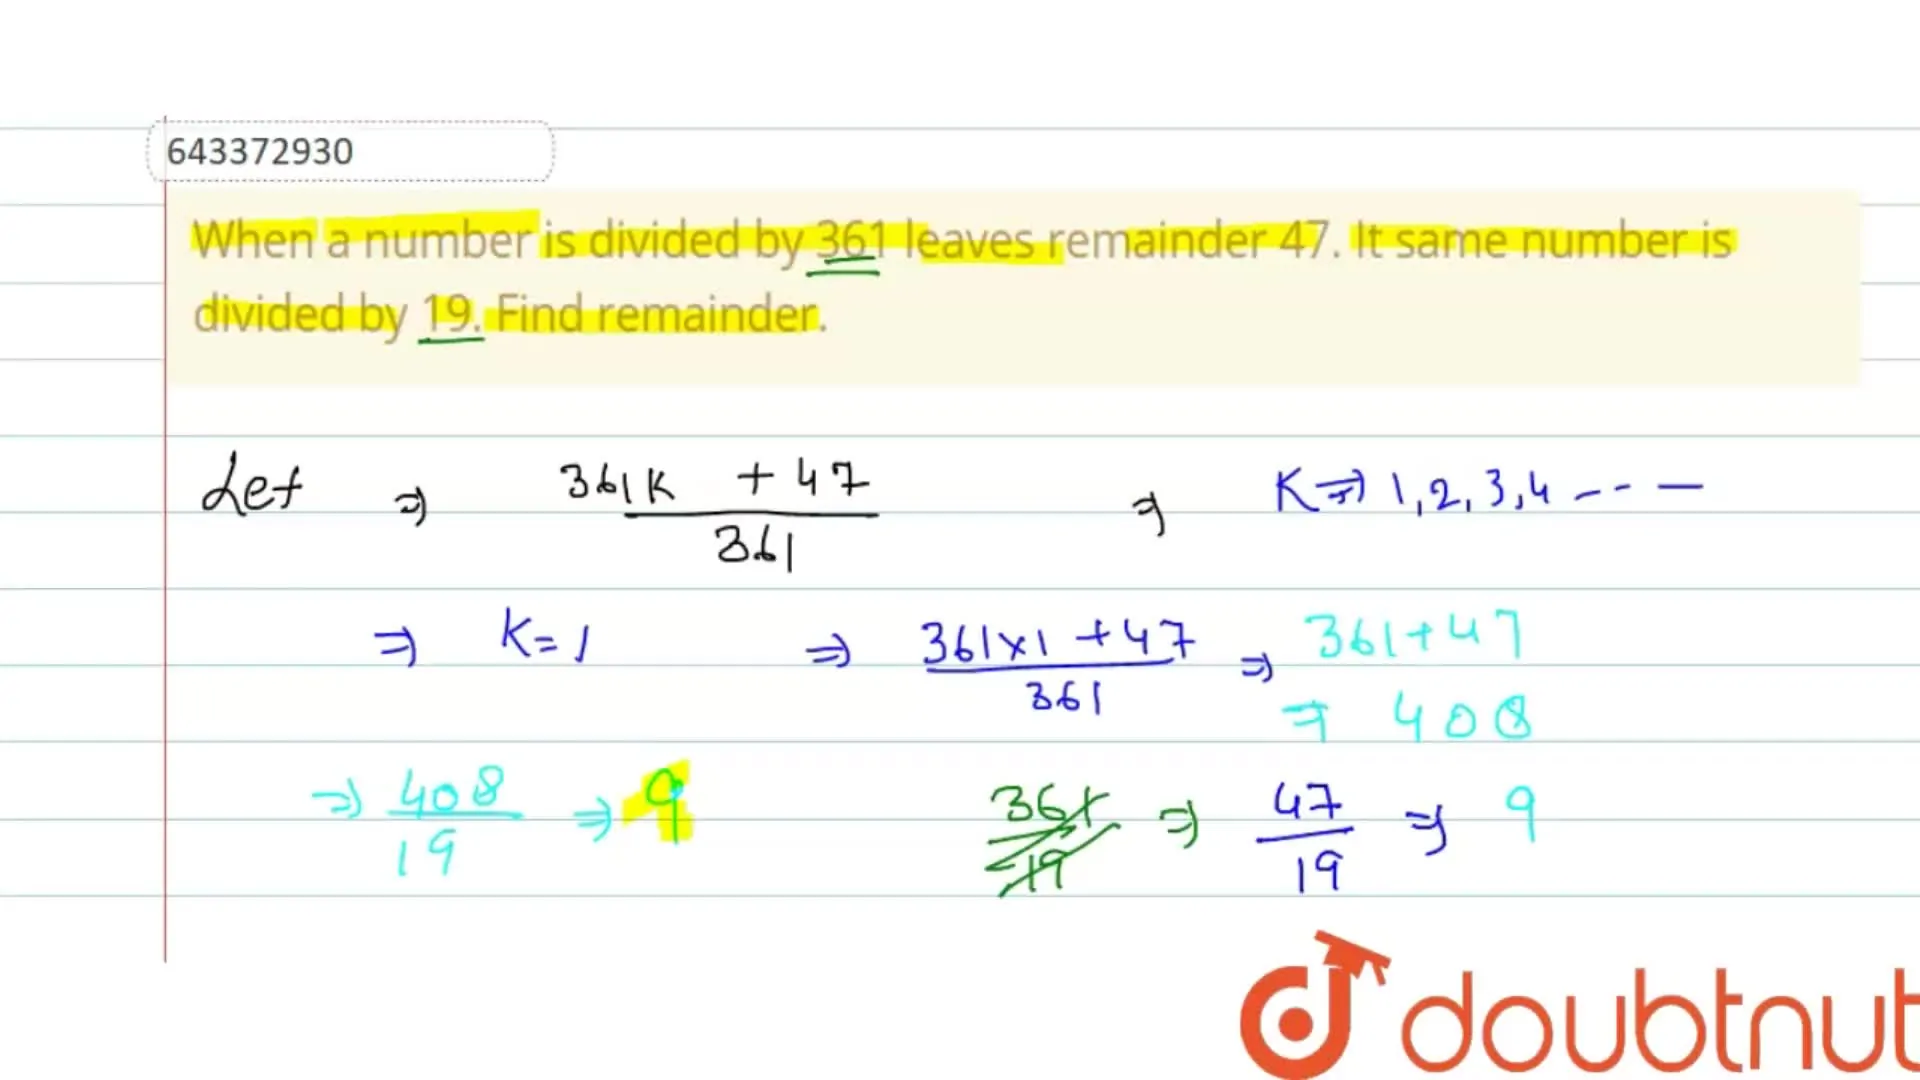 643372930
When a number is divided by 361 leaves remainder 47. It same number is
divided by 19. Find remainder.
Let ⇒ 361K + 47 / 361 ⇒ K ⇒ 1, 2, 3, 4 - - —
⇒ K = 1 ⇒ 361×1 + 47 / 361 ⇒ 361 + 47
⇒ 408
⇒ 408 / 19 ⇒ 9 361 / 19 ⇒ 47 / 19 ⇒ 9
doubtnut